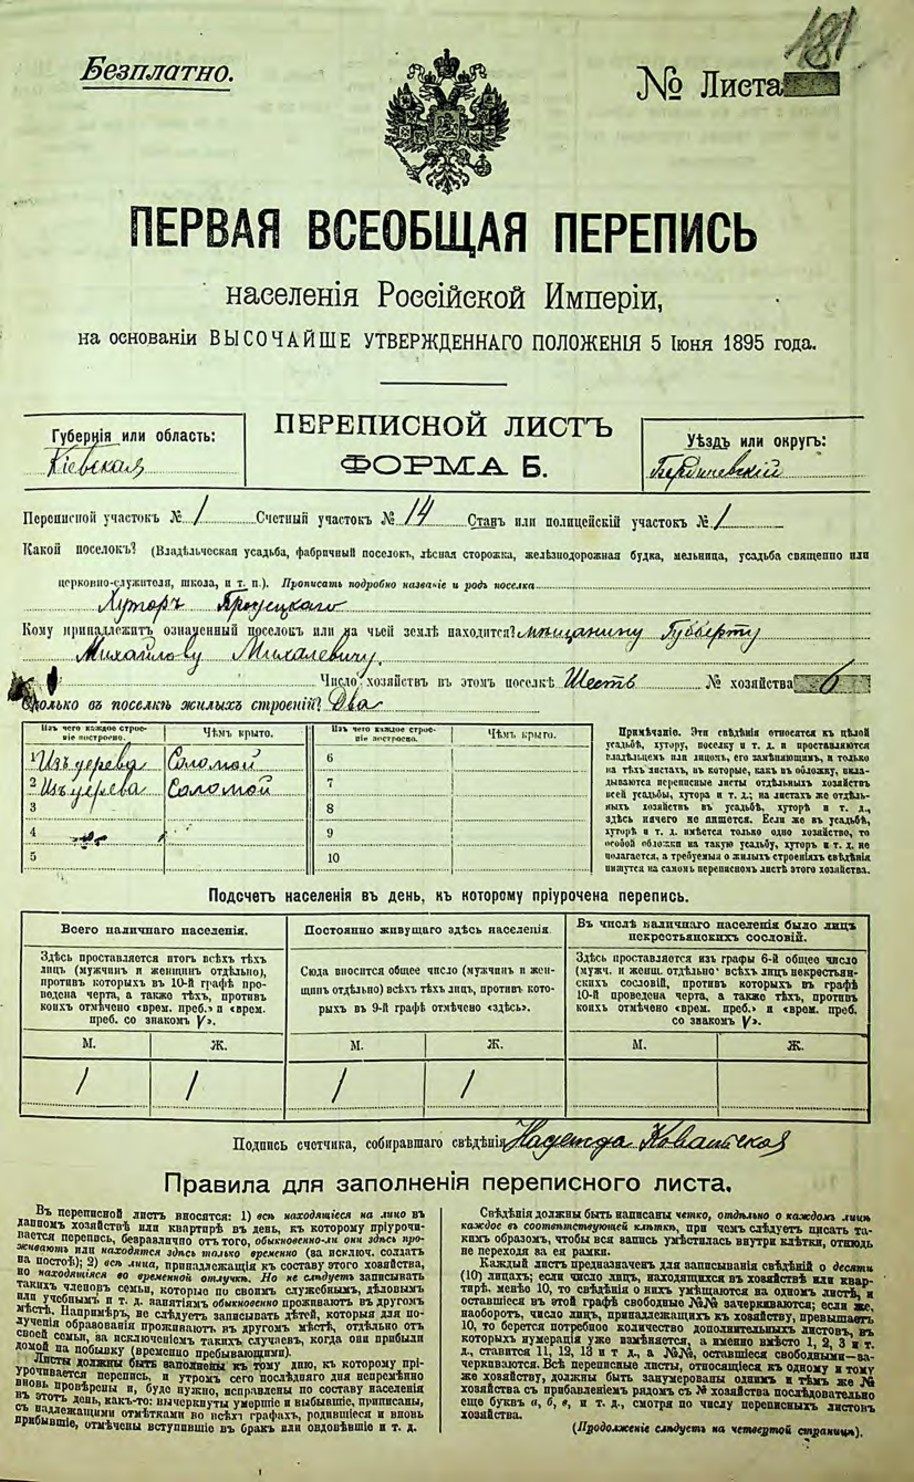 181
Безплатно.
№ Листа
ПЕРВАЯ ВСЕОБЩАЯ ПЕРЕПИСЬ
населенія Россійской Имперіи,
на основаніи ВЫСОЧАЙШЕ УТВЕРЖДЕННАГО ПОЛОЖЕНІЯ 5 Іюня 1895 года.
ПЕРЕПИСНОЙ ЛИСТЪ
ФОРМА Б.
Губернія или область:
Кіевская
Уѣздъ или округъ:
Бердичевскій
Переписной участокъ № 1 Счетный участокъ № 14 Станъ или полицейскій участокъ № 1
Какой поселокъ? (Владѣльческая усадьба, фабричный поселокъ, лѣсная сторожка, желѣзнодорожная будка, мельница, усадьба священно или
церковно-служителя, школа, и т. п.). Прописать подробно названіе и родъ поселка
Хуторъ
Кому принадлежитъ означенный поселокъ или на чьей землѣ находится? мѣщанину Губерту
Михайлову Михалевичу.
Число хозяйствъ въ этомъ поселкѣ Шесть № хозяйства 6
Сколько въ поселкѣ жилыхъ строеній? Два
Изъ чего каждое строе-
ніе построено.
Чѣмъ крыто.
Изъ чего каждое строе-
ніе построено.
Чѣмъ крыто.
1 Изъ дерева Соломой 6
2 Изъ дерева Соломой 7
3 8
4 9
5 10
Примѣчаніе. Эти свѣдѣнія относятся къ цѣлой
усадьбѣ, хутору, поселку и т. д. и проставляются
владѣльцемъ или лицомъ, его замѣняющимъ, и только
на тѣхъ листахъ, въ которые, какъ въ обложку, вкла-
дываются переписные листы отдѣльныхъ хозяйствъ
всей усадьбы, хутора и т. д.; на листахъ же отдѣль-
ныхъ хозяйствъ въ усадьбѣ, хуторѣ и т. д.,
здѣсь ничего не пишется. Если же въ усадьбѣ,
хуторѣ и т. д. имѣется только одно хозяйство, то
особой обложки на такую усадьбу, хуторъ и т. д. не
полагается, а требуемыя о жилыхъ строеніяхъ свѣдѣнія
пишутся на самомъ переписномъ листѣ этого хозяйства.
Подсчетъ населенія въ день, къ которому пріурочена перепись.
Всего наличнаго населенія.
Здѣсь проставляется итогъ всѣхъ тѣхъ
лицъ (мужчинъ и женщинъ отдѣльно),
противъ которыхъ въ 10-й графѣ про-
ведена черта, а также тѣхъ, противъ
коихъ отмѣчено «врем. преб.» и «врем.
преб. со знакомъ V».
Постоянно живущаго здѣсь населенія.
Сюда вносится общее число (мужчинъ и жен-
щинъ отдѣльно) всѣхъ тѣхъ лицъ, противъ кото-
рыхъ въ 9-й графѣ отмѣчено «здѣсь».
Въ числѣ наличнаго населенія было лицъ
некрестьянскихъ сословій.
Здѣсь проставляется изъ графы 6-й общее число
(мужч. и женщ. отдѣльно) всѣхъ лицъ некрестьян-
скихъ сословій, противъ которыхъ въ графѣ
10-й проведена черта, а также тѣхъ, противъ
коихъ отмѣчено «врем. преб.» и «врем. преб.
со знакомъ V».
М. Ж. М. Ж. М. Ж.
1 1 1 1
Подпись счетчика, собиравшаго свѣдѣнія Надежда
Правила для заполненія переписного листа.
Въ переписной листъ вносятся: 1) всѣ находящіеся на лицо въ
данномъ хозяйствѣ или квартирѣ въ день, къ которому пріурочи-
вается перепись, безразлично отъ того, обыкновенно-ли они здѣсь про-
живаютъ или находятся здѣсь только временно (за исключ. солдатъ
на постоѣ); 2) всѣ лица, принадлежащія къ составу этого хозяйства,
но находящіяся во временной отлучкѣ. Но не слѣдуетъ записывать
такихъ членовъ семьи, которые по своимъ служебнымъ, дѣловымъ
или учебнымъ и т. д. занятіямъ обыкновенно проживаютъ въ другомъ
мѣстѣ. Напримѣръ, не слѣдуетъ записывать дѣтей, которыя для по-
лученія образованія проживаютъ въ другомъ мѣстѣ, отдѣльно отъ
своей семьи, за исключеніемъ такихъ случаевъ, когда они прибыли
домой на побывку (временно пребывающими).
Листы должны быть заполнены къ тому дню, къ которому прі-
урочивается перепись, и утромъ сего послѣдняго дня непремѣнно
вновь провѣрены и, буде нужно, исправлены по составу населенія
въ этотъ день, какъ-то: вычеркнуты умершіе и выбывшіе, приписаны,
съ надлежащими отмѣтками во всѣхъ графахъ, родившіеся и вновь
прибывшіе, отмѣчены вступившіе въ бракъ или овдовѣвшіе и т. д.
Свѣдѣнія должны быть написаны четко, отдѣльно о каждомъ лицѣ
каждое въ соотвѣтствующей клѣткѣ, при чемъ слѣдуетъ писать та-
кимъ образомъ, чтобы вся запись умѣстилась внутри клѣтки, отнюдь
не переходя за ея рамки.
Каждый листъ предназначенъ для записыванія свѣдѣній о десяти
(10) лицахъ; если число лицъ, находящихся въ хозяйствѣ или квар-
тирѣ, менѣе 10, то свѣдѣнія о нихъ умѣщаются на одномъ листѣ, и
оставшіеся въ этой графѣ свободные №№ зачеркиваются; если же,
наоборотъ, число лицъ, принадлежащихъ къ хозяйству, превышаетъ
10, то берется потребное количество дополнительныхъ листовъ, въ
которыхъ нумерація уже измѣняется, а именно вмѣсто 1, 2, 3 и т.
д., ставится 11, 12, 13 и т. д., а №№, оставшіеся свободными—за-
черкиваются. Всѣ переписные листы, относящіеся къ одному и тому
же хозяйству, должны быть занумерованы однимъ и тѣмъ же №
хозяйства съ прибавленіемъ рядомъ съ № хозяйства послѣдовательно
еще буквъ а, б, в, и т. д., смотря по числу переписныхъ листовъ
хозяйства.
(Продолженіе слѣдуетъ на четвертой страницѣ).